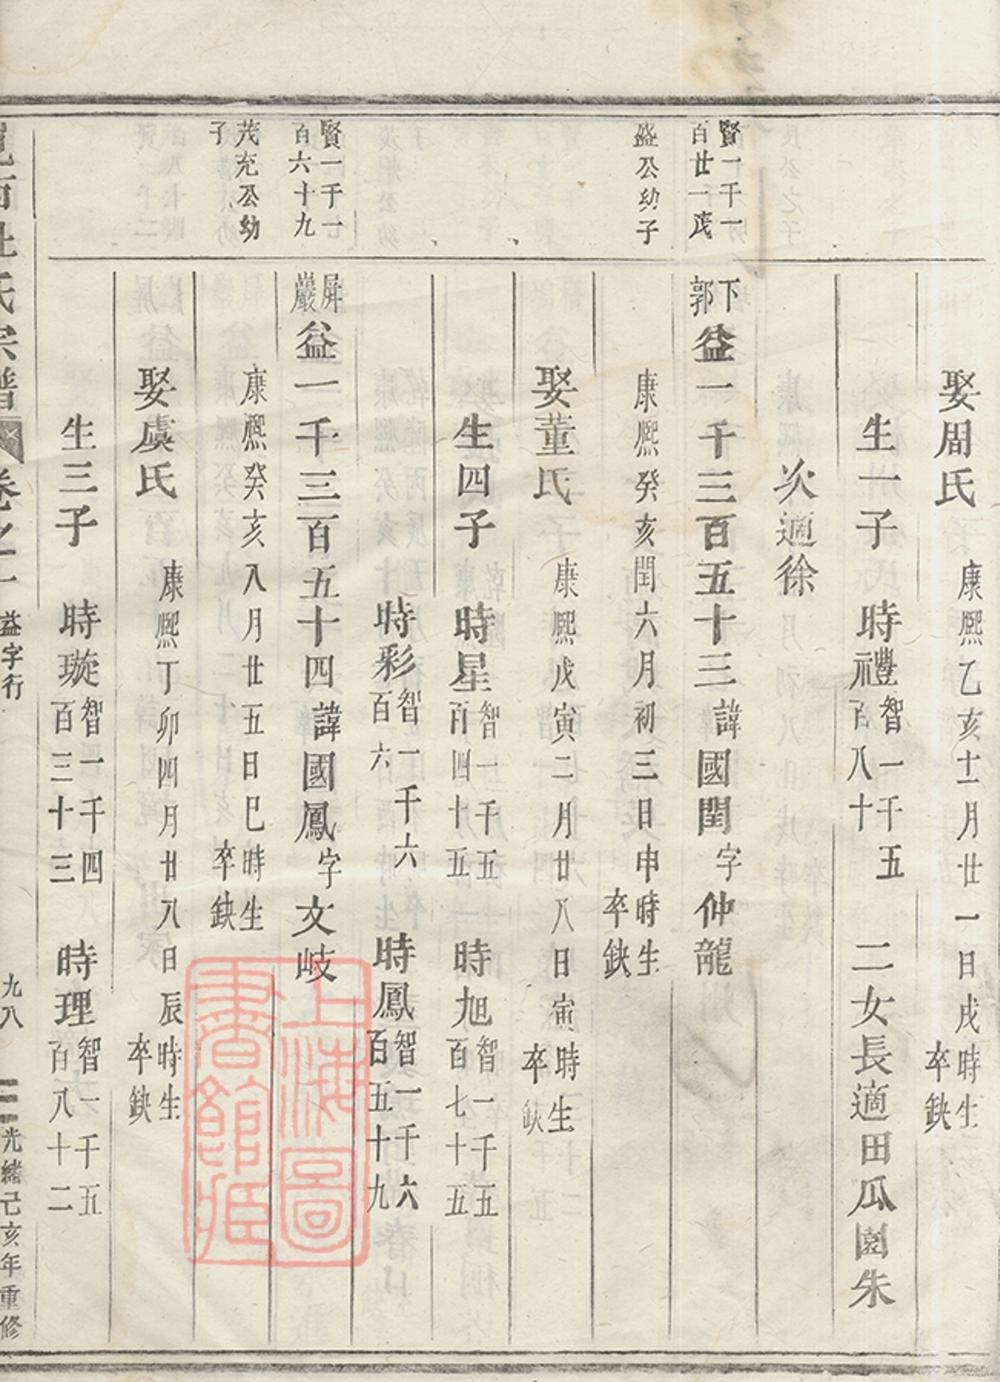 娶周氏 康熙乙亥十一月廿一日戌時生卒缺
生一子 時禮智一千五百八十 二女長適田瓜園朱
次適徐
賢一千一百廿一茂盛公幼子
下郭益一千三百五十三諱國閏字仲龍
康熙癸亥閏六月初三日申時生卒缺
娶董氏 康熙戊寅二月廿八日寅時生卒缺
生四子 時星智一千五百四十五 時旭智一千五百七十五
時彩智一千六百六 時鳳智一千六百五十九
賢一千一百六十九茂充公幼子
屏巖益一千三百五十四諱國鳳字文岐
康熙癸亥八月廿五日巳時生卒缺
娶虞氏 康熙丁卯四月廿八日辰時生卒缺
生三子 時璇智一千四百三十三 時理智一千五百八十二
杜氏宗譜 卷之一 益字行 九八 光緒己亥年重修
上海圖書館藏